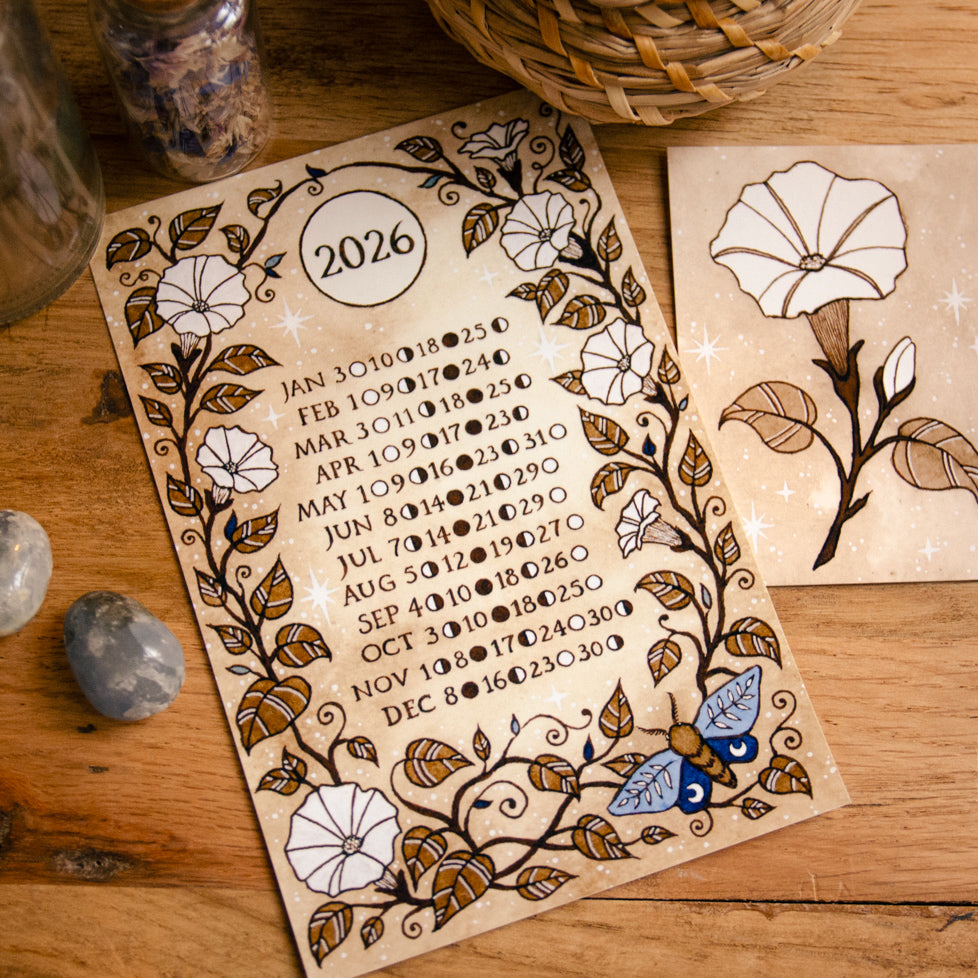 2026
JAN 3○10◐18●25◐
FEB 1○9◐17●24◐
MAR 3○11◐18●25◐
APR 1○9◐17●23◐
MAY 1○9◐16●23◐31○
JUN 8◐14●21◐29○
JUL 7◐14●21◐29○
AUG 5◐12●19◐27○
SEP 4◐10●18◐26○
OCT 3◐10●18◐25○
NOV 1◐8●17◐24○30◐
DEC 8●16◐23○30◐